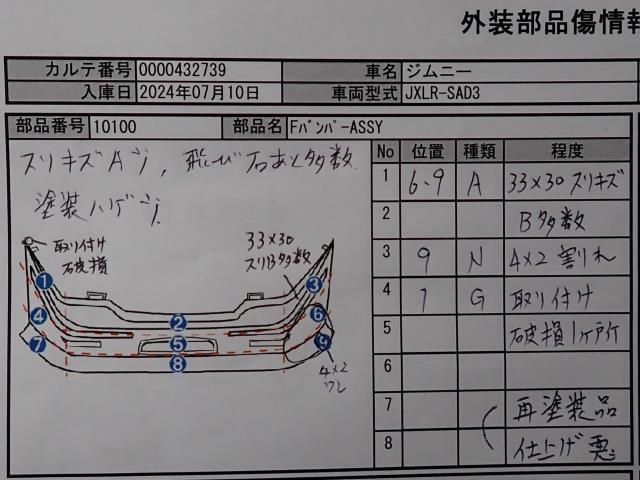 外装部品傷情報
カルテ番号 0000432739 車名 ジムニー
入庫日 2024年07月10日 車両型式 JXLR-SAD3
部品番号 10100 部品名 Fバンパー-ASSY
スリキズAジ, 飛び石あと多数
塗装ハゲジ
取り付け
破損
33×30
スリB多数
1
2
3
4
5
6
7
8
9
4×2
ワレ
No 位置 種類 程度
1 6.9 A 33×30 スリキズ
2 B多数
3 9 N 4×2 割れ
4 1 G 取り付け
5 破損1ヶ所
6
7 再塗装品
8 仕上げ悪